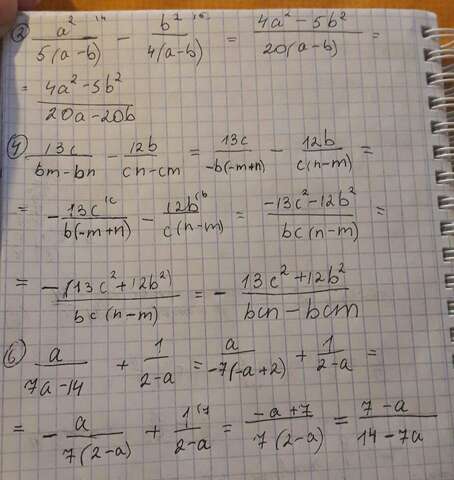 2) a² ⁽⁴ / 5(a-b) - b² ⁽⁵ / 4(a-b) = 4a² - 5b² / 20(a-b) =
= 4a² - 5b² / 20a - 20b
4) 13c / bm - bn - 12b / cn - cm = 13c / -b(-m+n) - 12b / c(n-m) =
= - 13c ⁽c / b(-m+n) - 12b ⁽b / c(n-m) = -13c² - 12b² / bc(n-m) =
= -(13c² + 12b²) / bc(n-m) = - 13c² + 12b² / bcn - bcm
6) a / 7a - 14 + 1 / 2-a = a / -7(-a+2) + 1 / 2-a =
= - a / 7(2-a) + 1 ⁽7 / 2-a = -a + 7 / 7(2-a) = 7 - a / 14 - 7a